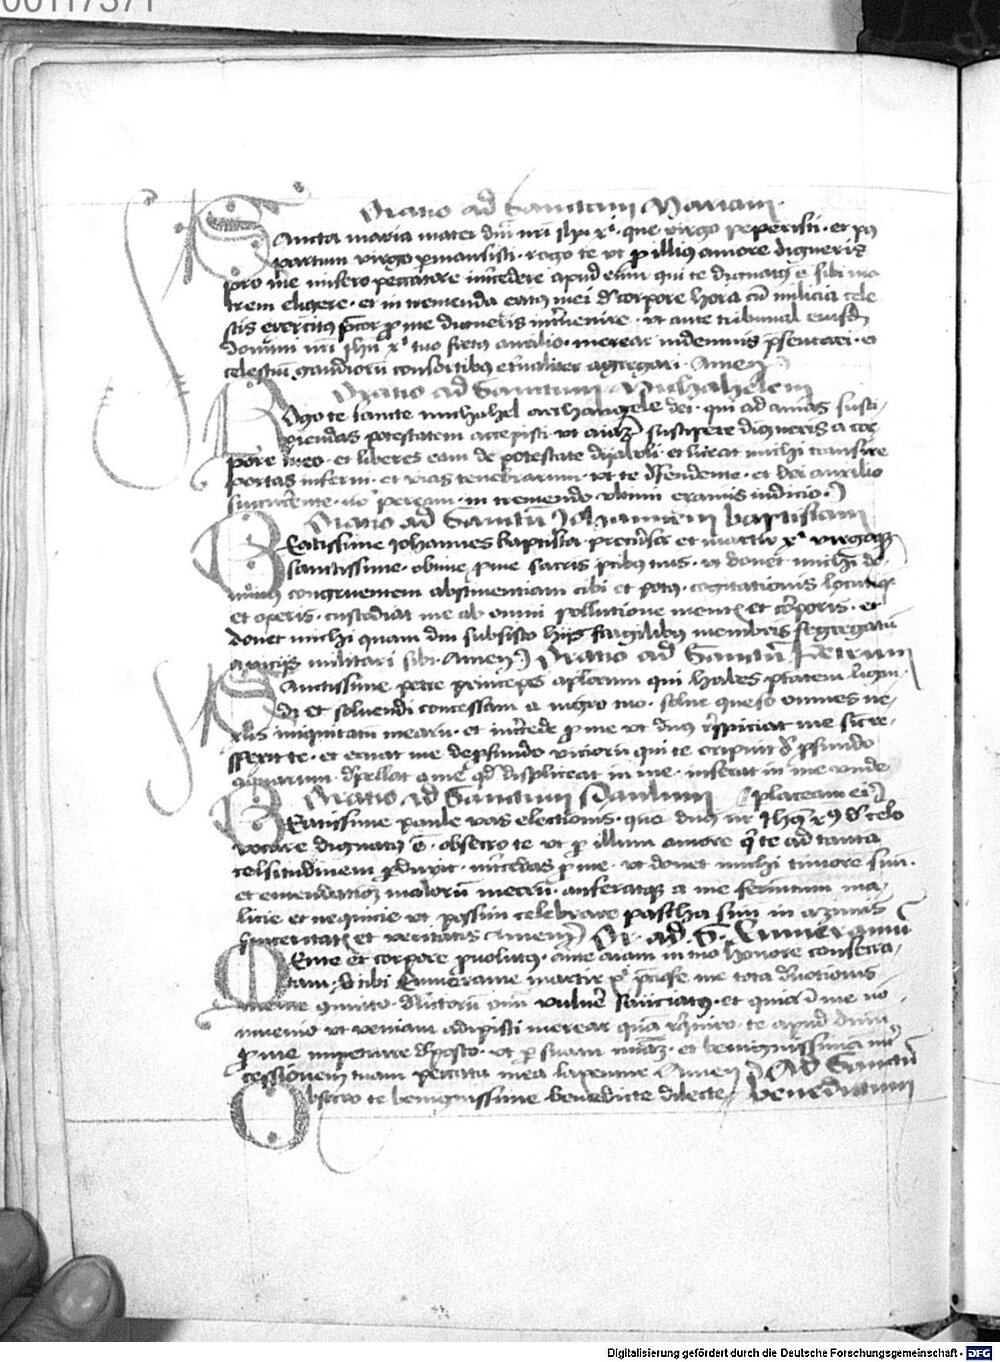 00117371
Oratio ad Sanctam Mariam.
Sancta maria mater dni nri Jhu xi. que virgo peperisti. et post
partum virgo pmansisti. rogo te ut p illius amore digneris
pro me misero peccatore intcedere apud eum qui te dignatus e sibi ma
trem eligere. et in tremenda exitus mei de corpore hora cu milicia cele
stis exercitus pcor p me digneris intvenire. ut ante tribunal eiusdem
domini nri Jhu xi tuo fretus auxilio. merear indempnis psentari. et
celestiu gaudioru consortibus etnaliter aggregari. Amen
Oratio ad Sanctum Michahelem
Rogo te sancte michahel archangele dei. qui ad animas susci-
piendas potestatem accepisti. ut aiam suscipere digneris a cor
pore meo. et liberes eam de potestate dyaboli. et liceat michi transire
portas inferni. et vias tenebrarum. ut te defendente. et dei auxilio
succurrente. no peream. in tremendo ultimi examinis iudicio.
Oratio ad Sanctu Johannem baptistam
Beatissime Johannes baptista. precursor et martir xi. virgoque
sanctissime. obtine p me sacris pcibus tuis. ut donet michi de-
congruentem abstinentiam cibi et potus. cogitationis locutionis
et operis. custodiat me ab omni pollutione mentis et corporis. et
donet michi quam diu subsisto hijs fragilibus membris segregatu
a vicijs militari sibi. Amen. Oratio ad Sanctu Petrum
Sanctissime petre princeps aplorum qui habes ptatem ligan-
di et soluendi concessam a mgro tuo. solue queso omnes ne-
xus iniquitatu mearu. et intcede p me ut dns respiciat me sic re-
spexit te. et eruat me de pfundo vicioru qui te eripuit de pfundo
aquarum. depellat a me qd displiceat in me. inserat in me unde
Oratio ad Sanctum Paulum placeam ei
Beatissime paule vas electionis. que dns nr Jhus xps de celo
vocare dignatus e. obsecro te ut p illum amore q te ad tanta
celsitudinem pduxit. intcedas p me. ut donet michi timore suu.
et emendatioe maloru meoru. auferatque a me fermentum ma-
licie et nequicie ut possim celebrare pascha suu in azimis
sinceritatis et veritatis Amen. Or. ad. S. Emmeramu
Mente et corpore pvolutus. ante aram in tuo honore consecra-
tam. tibi Emmerame martir xi. pfiteor me tota deuotionis
mente omitto. delictoru omni vulnere sauciatus. et quia in me no
inuenio ut veniam adipisci merear quam requiro. te apud dnm
p me imperare deposco. ut p suam miam. et benignissima in-
cessionem tuam peccata mea Amen. Ad Sanctu
Obsecro te benignissime benedicte dilecte benedictum
Digitalisierung gefördert durch die Deutsche Forschungsgemeinschaft - DFG